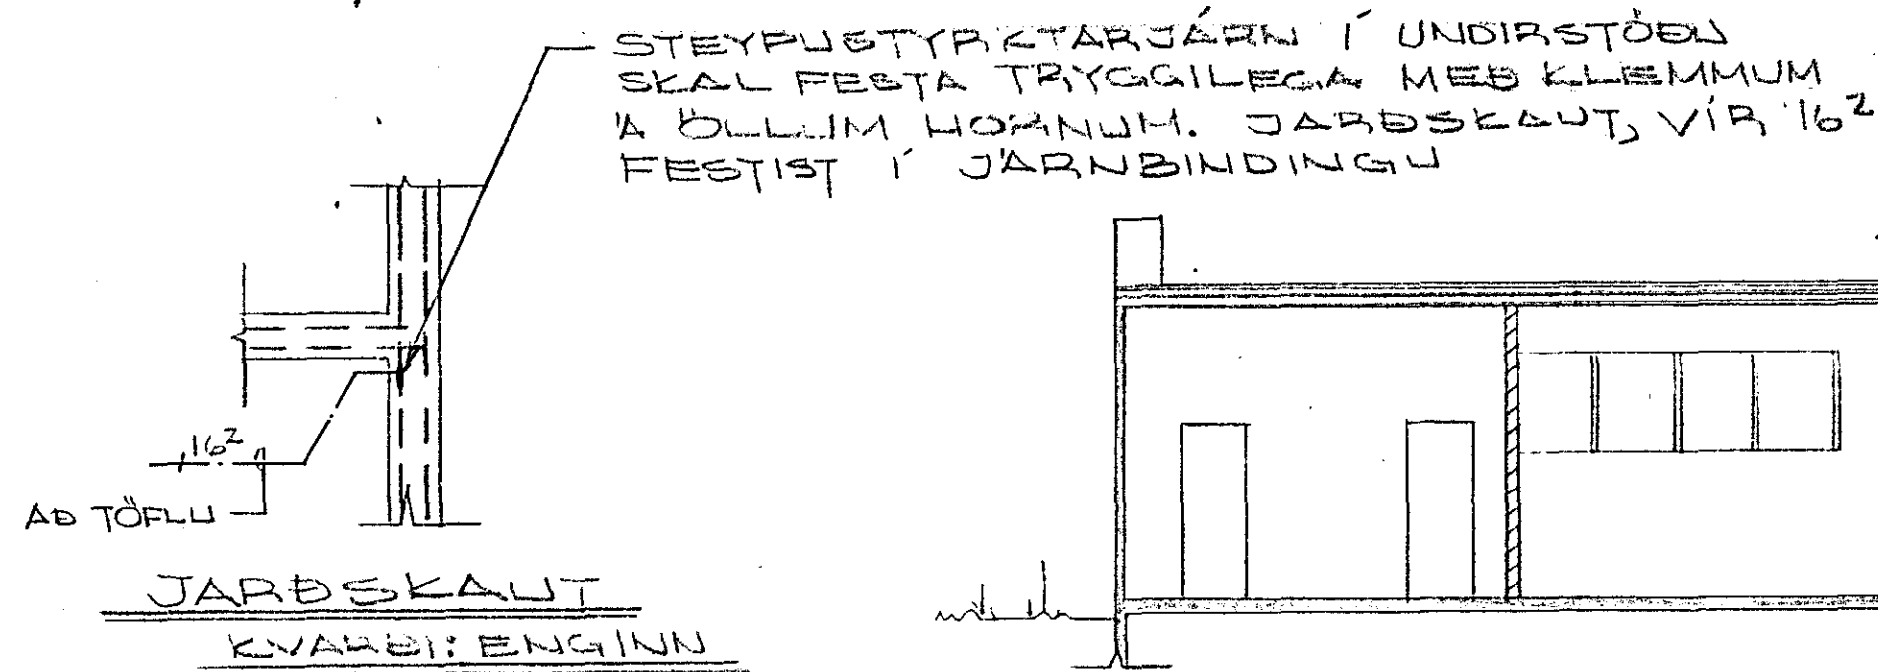 STEYPUSTYRKTARJÁRN Í UNDIRSTÖÐU
SKAL FESTA TRYGGILEGA MEÐ KLEMMUM
Á ÖLLUM HORNUM. JARÐSKAUT, VÍR 16²
FESTIST Í JÁRNBINDINGU
16²
AÐ TÖFLU
JARÐSKAUT
KVARÐI: ENGINN